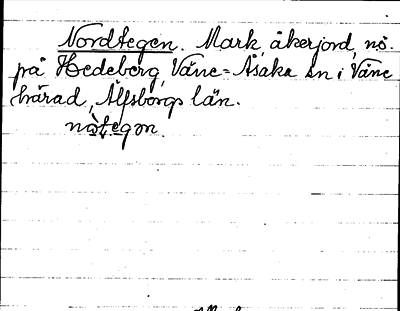 Nordtegen. Mark, åkerjord, nö.
på Hedeberg, Väne-Åsaka sn i Väne
härad, Älfsborgs län.
nòṯegọn.